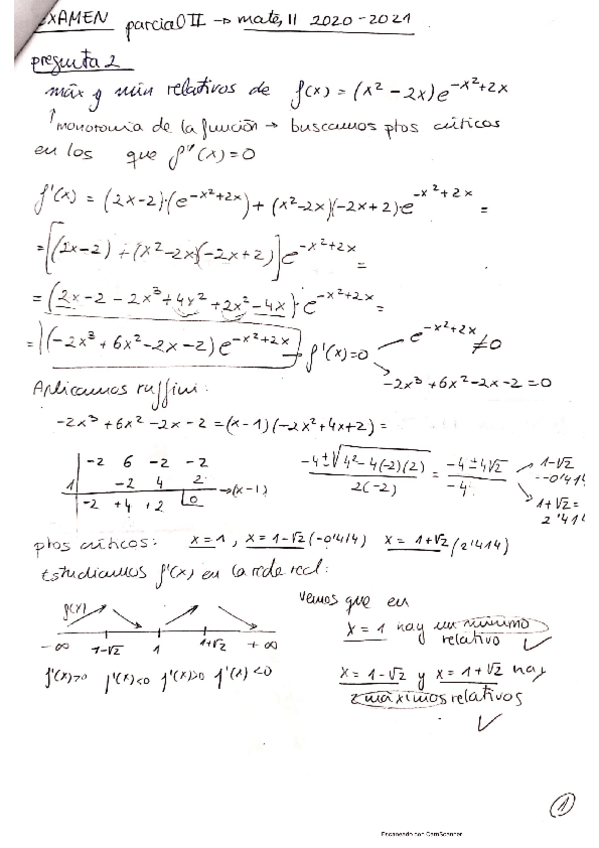 EXAMEN parcial II → mates II 2020-2021
pregunta 2
máx y mín relativos de f(x) = (x² - 2x) e^{-x²+2x}
↑ monotonía de la función → buscamos ptos críticos
en los que f'(x) = 0
f'(x) = (2x-2)·(e^{-x²+2x}) + (x²-2x)(-2x+2)·e^{-x²+2x} =
= [(2x-2) + (x²-2x)(-2x+2)] e^{-x²+2x} =
= (2x - 2 - 2x³ + 4x² + 2x² - 4x)·e^{-x²+2x} =
= (-2x³ + 6x² - 2x - 2) e^{-x²+2x} → f'(x)=0
e^{-x²+2x} ≠ 0
-2x³ + 6x² - 2x - 2 = 0
Aplicamos ruffini:
-2x³ + 6x² - 2x - 2 = (x-1)(-2x² + 4x + 2) =
-2 6 -2 -2
1 -2 4 2
-2 +4 +2 0 → (x-1)
-4 ± √4² - 4(-2)(2) / 2(-2) = -4 ± 4√2 / -4
1-√2
-0'414
1+√2 =
2'414
ptos críticos: x = 1, x = 1-√2 (-0'414) x = 1+√2 (2'414)
Estudiamos f'(x) en la recta real:
f(x)
-∞ 1-√2 1 1+√2 +∞
f'(x)>0 f'(x)<0 f'(x)>0 f'(x)<0
Vemos que en
x = 1 hay un mínimo
relativo ✓
x = 1-√2 y x = 1+√2 hay
2 máximos relativos
✓
1
Escaneado con CamScanner